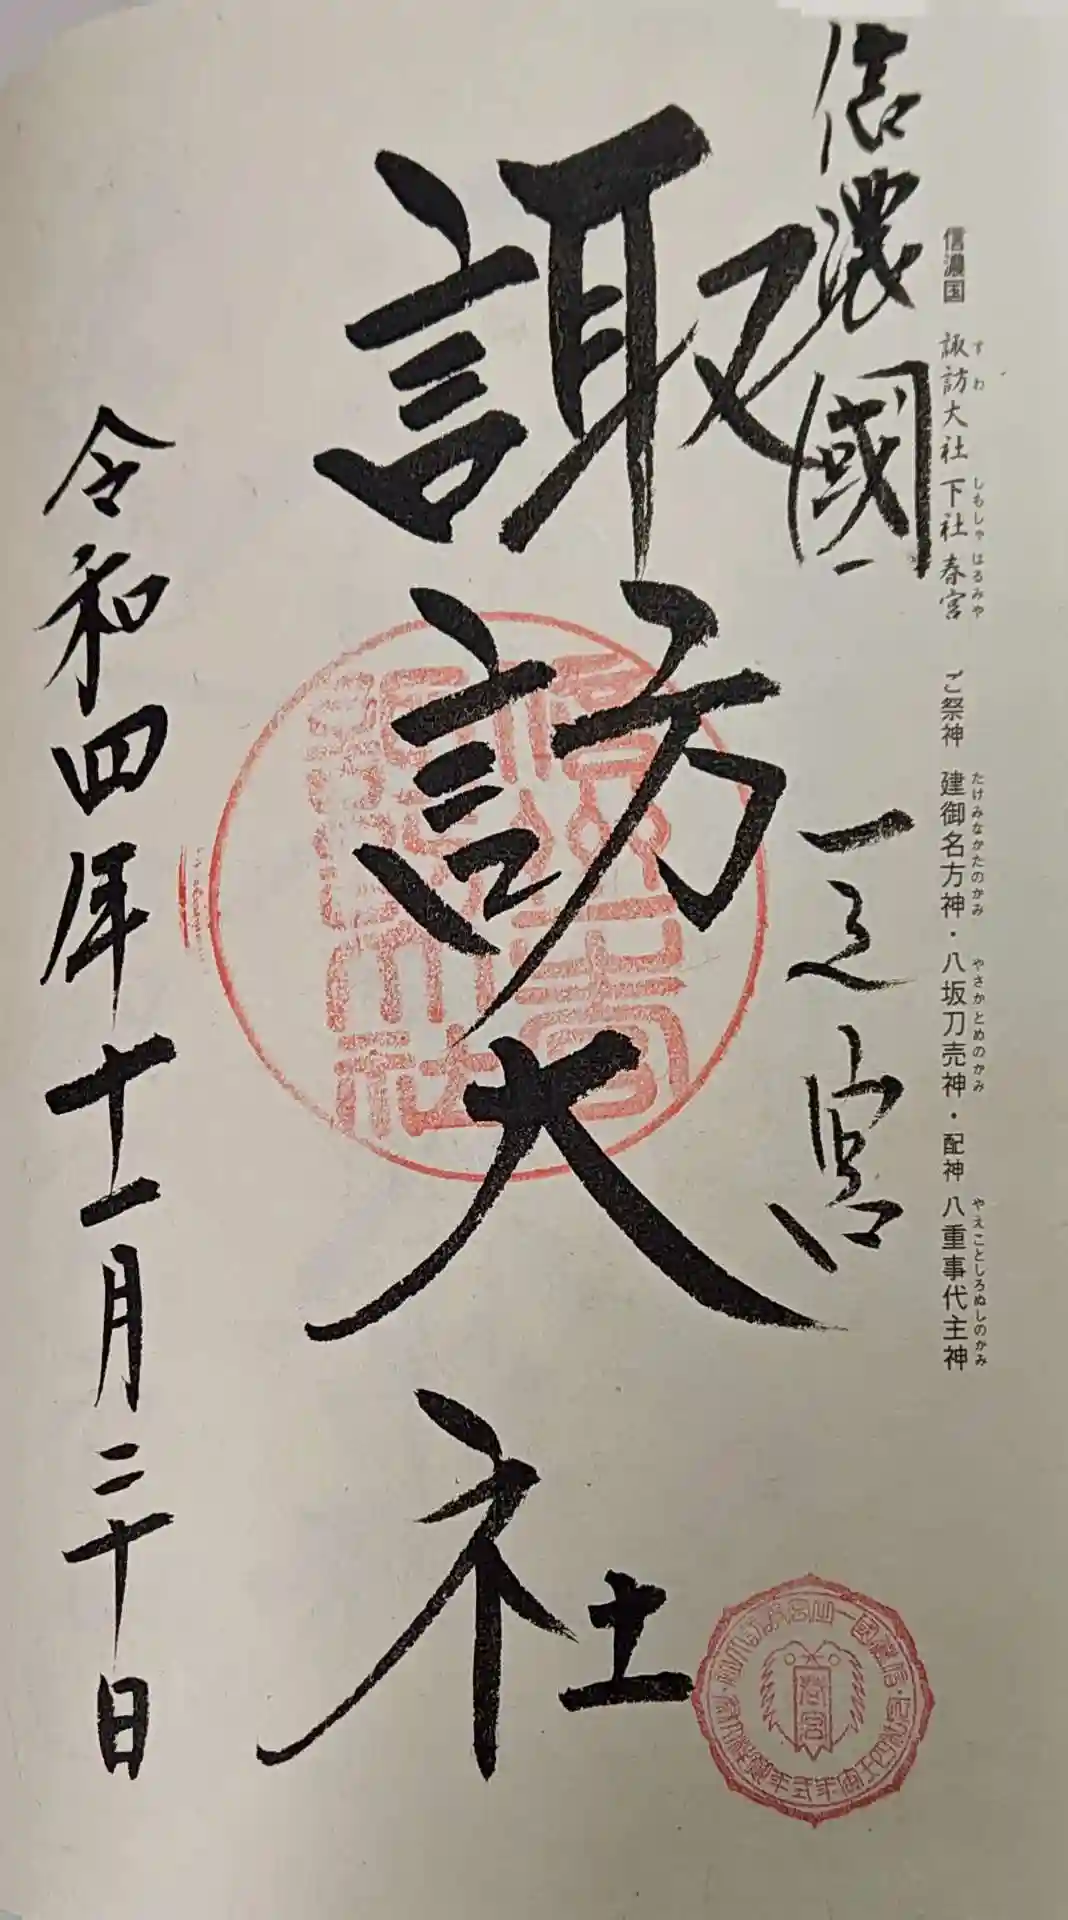 信濃国 諏訪大社 下社 春宮 ご祭神 建御名方神・八坂刀売神・配神 八重事代主神
すわ しもしゃ はるみや たけみなかたのかみ やさかとめのかみ やえことしろぬしのかみ
信濃國 一之宮
諏訪大社
令和四年十一月二十日
春宮